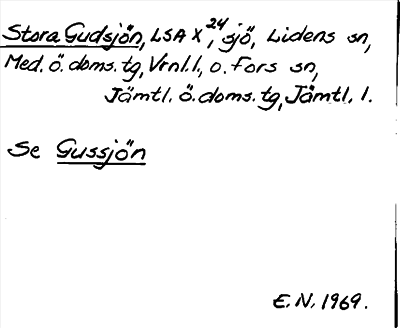 Stora Gudsjön, LSA X, 24 sjö, Lidens sn,
Med. ö. doms. tg, Vrnl. l., o. Fors sn,
Jämtl. ö. doms. tg, Jämtl. l.
Se Gussjön
E. N. 1969.